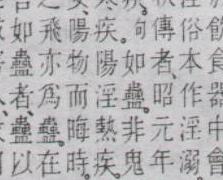 飲食器中
俗本作淫溺
傳者、昭元年
句如蠱。非鬼
疾。陽淫熱疾。
女陽物而晦時
之飛亦爲蠱。在
如蠱者、蠱以